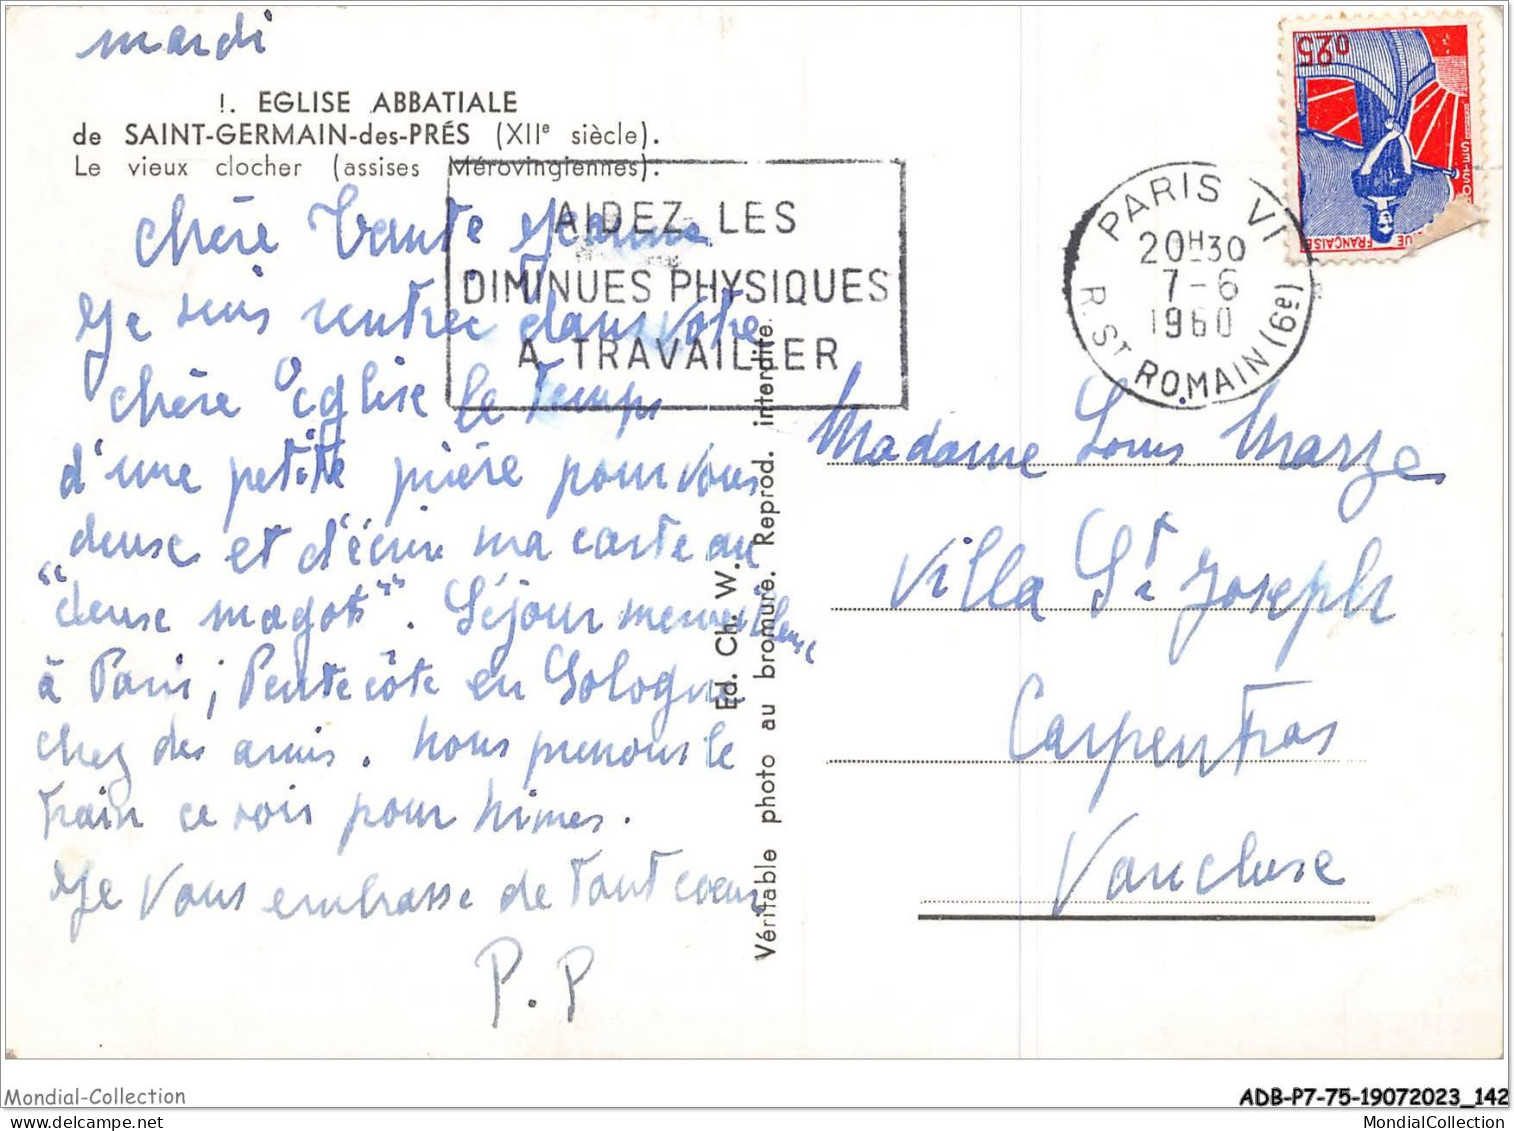 mardi
!. EGLISE ABBATIALE
de SAINT-GERMAIN-des-PRÉS (XIIᵉ siècle).
Le vieux clocher (assises Mérovingiennes).
AIDEZ LES
DIMINUES PHYSIQUES
A TRAVAILLER
PARIS VI
20H30
7-6
1960
R. ST ROMAIN (6e)
0,25
POSTES
FRANÇAISE
Chère Tante Jeanne
Je suis rentrée dans votre
chère Eglise le temps
d'une petite prière pour vous
deux et d'écrire ma carte au
"deux magots". Séjour merveilleux
à Paris; Pentecôte en Sologne
chez des amis. Nous prenons le
train ce soir pour Nîmes.
Je vous embrasse de tout cœur
P.P
Ed. Ch. W.
Véritable photo au bromure. Reprod. interdite.
Madame Louis
Villa St Joseph
Carpentras
Vaucluse
Mondial-Collection
ADB-P7-75-19072023_142
MondialCollection